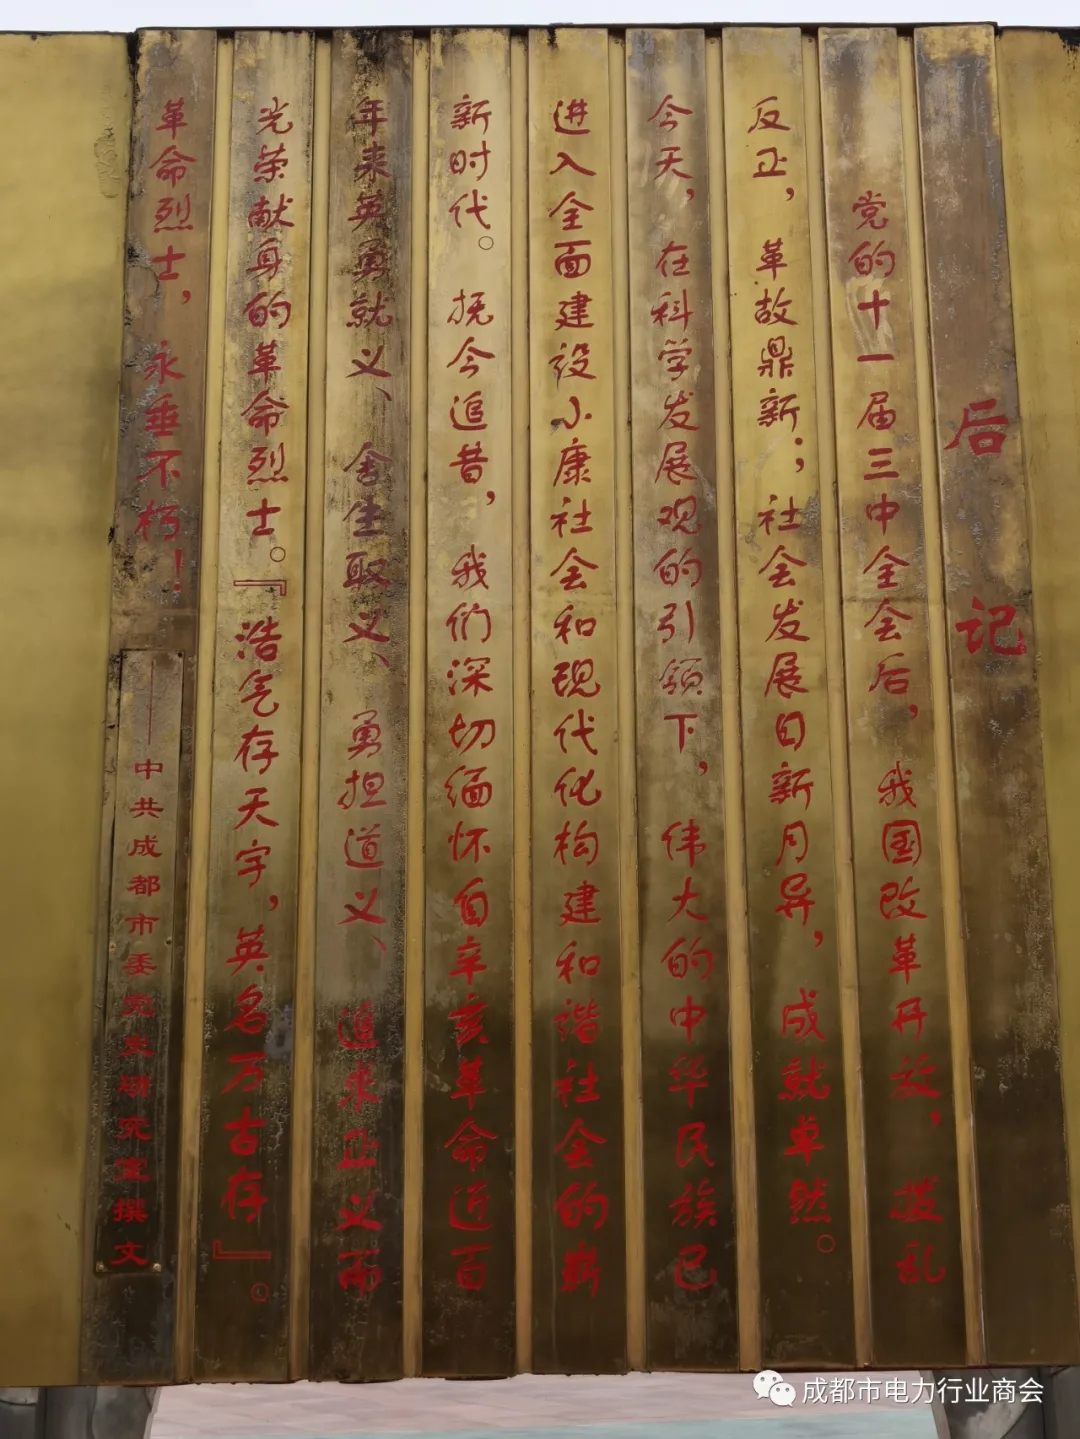 后记
党的十一届三中全会后，我国改革开放，拨乱
反正，革故鼎新；社会发展日新月异，成就卓然。
今天，在科学发展观的引领下，伟大的中华民族已
进入全面建设小康社会和现代化构建和谐社会的崭
新时代。抚今追昔，我们深切缅怀自辛亥革命近百
年来英勇就义、舍生取义、勇担道义、追求正义而
光荣献身的革命烈士。『浩气存天宇，英名万古存』。
革命烈士，永垂不朽！
——中共成都市委党史研究室撰文
成都市电力行业商会